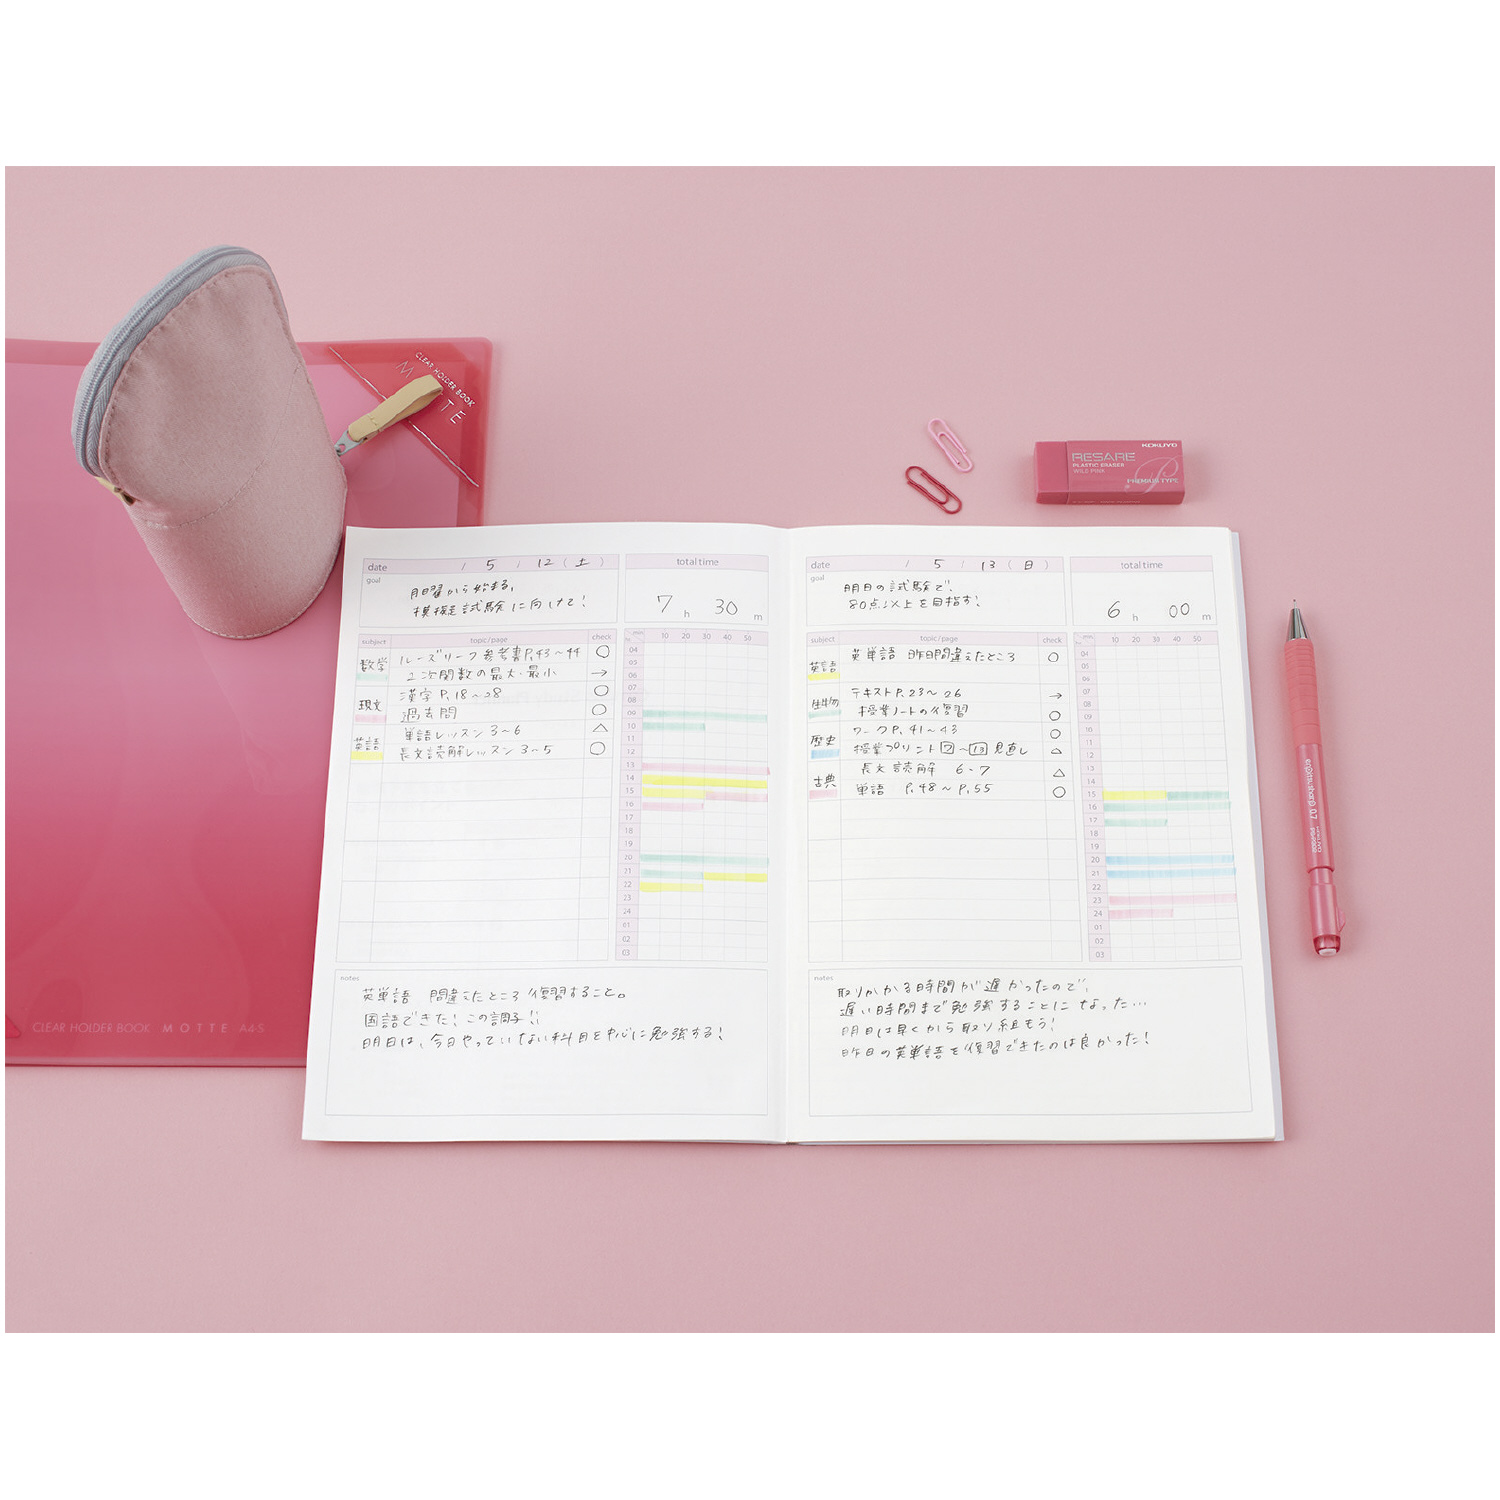 CLEAR HOLDER BOOK
MOTTE
KOKUYO
RESARE
PLASTIC ERASER
WILD PINK
PREMIUM TYPE
date / 5 / 12 (土)
total time
goal
月曜から始まる、
模擬試験に向けて!
7 h 30 m
subject topic/page check
min
10 20 30 40 50
hr
数学 ルーズリーフ参考書P,43～44 ○
2次関数の最大・最小 →
現文 漢字 P,18～28 ○
過去問 ○
英語 単語レッスン 3～6 △
長文読解レッスン 3~5 ○
04
05
06
07
08
09
10
11
12
13
14
15
16
17
18
19
20
21
22
23
24
01
02
03
notes
英単語 間違えたところ復習すること。
国語できた!この調子!!
明日は、今日やっていない科目を中心に勉強する!
date / 5 / 13 (日)
total time
goal
明日の試験で、
80点以上を目指す!
6 h 00 m
subject topic/page check
min
10 20 30 40 50
hr
英語 英単語 昨日間違えたところ ○
生物 テキストP,23～26 →
授業ノートの復習 ○
歴史 ワークP,41～43 ○
授業プリント7～13見直し △
古典 長文読解 6-7 △
単語 P,48～P,55 ○
04
05
06
07
08
09
10
11
12
13
14
15
16
17
18
19
20
21
22
23
24
01
02
03
notes
取りかかる時間が遅かったので、
遅い時間まで勉強することになった…
明日は早くから取り組もう!
昨日の英単語を復習できたのは良かった!
enpitsusharp 0.7
CLEAR HOLDER BOOK MOTTE A4-S